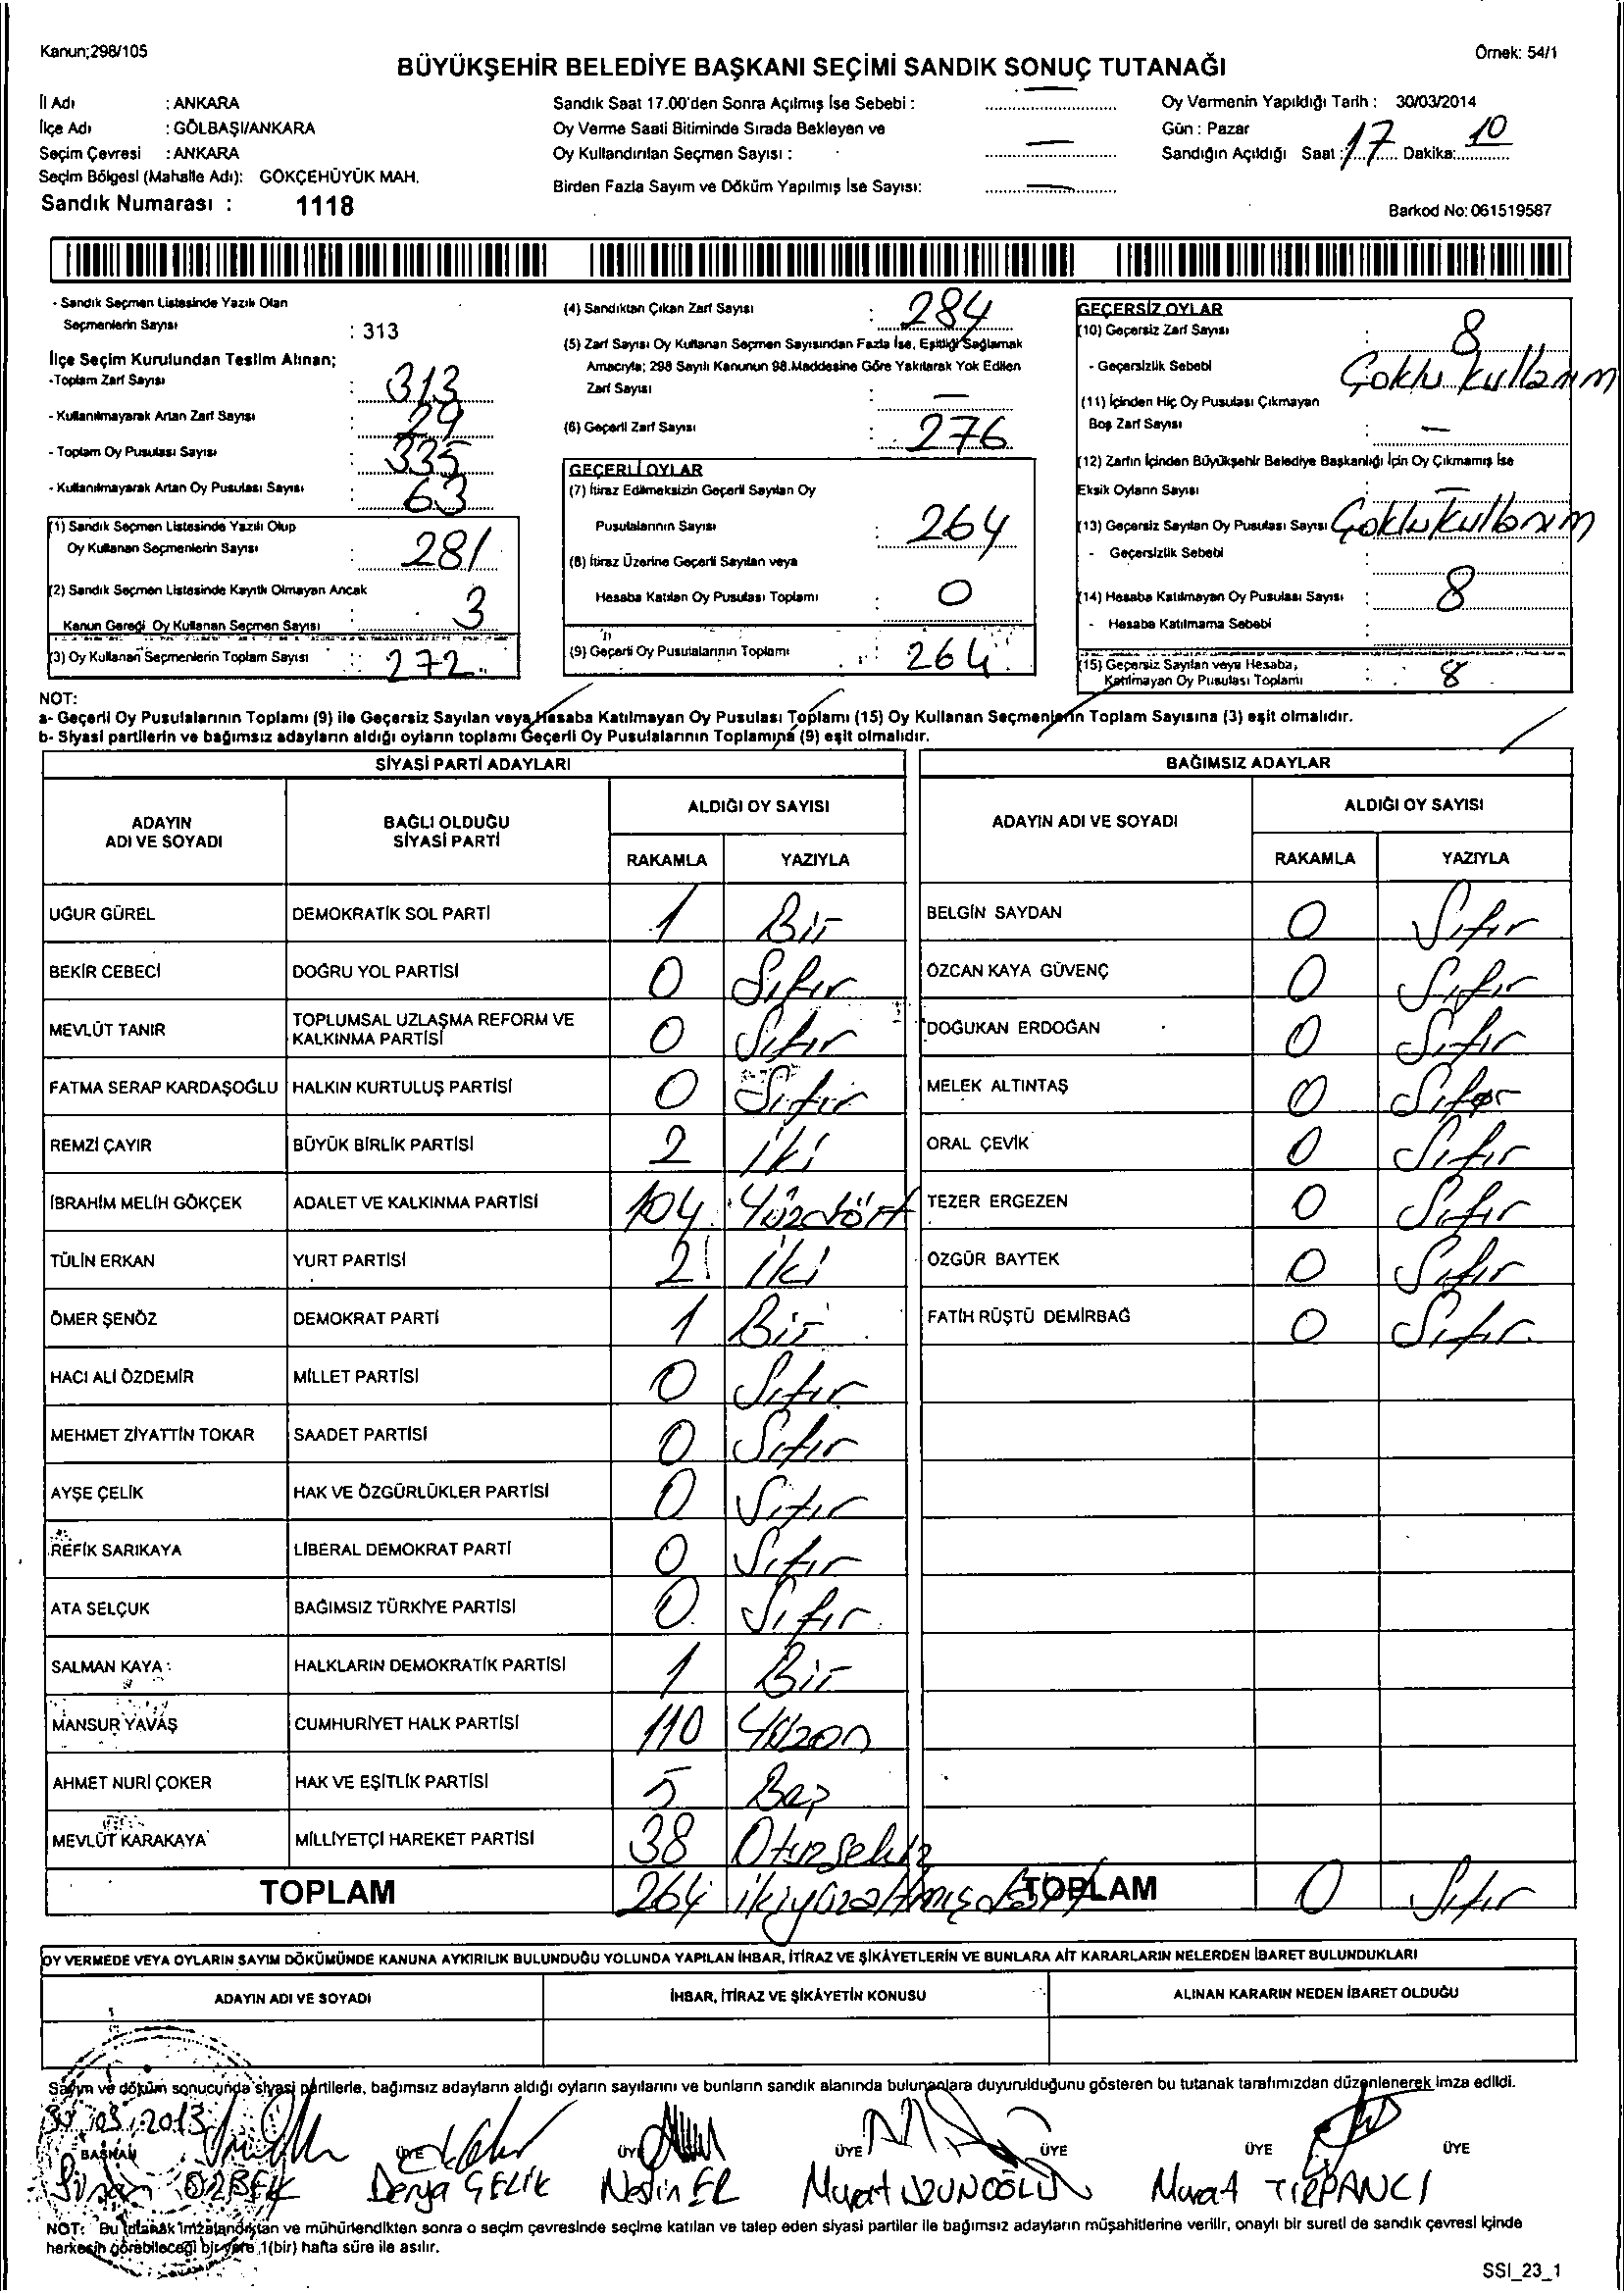 Kanun;298/105
Örnek: 54/1
BÜYÜKŞEHİR BELEDİYE BAŞKANI SEÇİMİ SANDIK SONUÇ TUTANAĞI
İl Adı : ANKARA
İlçe Adı : GÖLBAŞI/ANKARA
Seçim Çevresi : ANKARA
Seçim Bölgesi (Mahalle Adı): GÖKÇEHÜYÜK MAH.
Sandık Numarası : 1118
Sandık Saat 17.00'den Sonra Açılmış İse Sebebi : —
Oy Verme Saati Bitiminde Sırada Bekleyen ve
Oy Kullandırılan Seçmen Sayısı : —
Birden Fazla Sayım ve Döküm Yapılmış İse Sayısı: —
Oy Vermenin Yapıldığı Tarih : 30/03/2014
Gün : Pazar
Sandığın Açıldığı Saat : 17 Dakika: 10
Barkod No: 061519587
- Sandık Seçmen Listesinde Yazılı Olan
Seçmenlerin Sayısı : 313
İlçe Seçim Kurulundan Teslim Alınan;
-Toplam Zarf Sayısı : 313
- Kullanılmayarak Artan Zarf Sayısı : 29
- Toplam Oy Pusulası Sayısı : 335
- Kullanılmayarak Artan Oy Pusulası Sayısı : 63
(1) Sandık Seçmen Listesinde Yazılı Olup
Oy Kullanan Seçmenlerin Sayısı : 281
(2) Sandık Seçmen Listesinde Kayıtlı Olmayan Ancak
Kanun Gereği Oy Kullanan Seçmen Sayısı : 3
(3) Oy Kullanan Seçmenlerin Toplam Sayısı : 272
(4) Sandıktan Çıkan Zarf Sayısı : 284
(5) Zarf Sayısı Oy Kullanan Seçmen Sayısından Fazla İse, Eşitliği Sağlamak
Amacıyla; 298 Sayılı Kanunun 98.Maddesine Göre Yakılarak Yok Edilen
Zarf Sayısı : —
(6) Geçerli Zarf Sayısı : 276
GEÇERLİ OYLAR
(7) İtiraz Edilmeksizin Geçerli Sayılan Oy
Pusulalarının Sayısı : 264
(8) İtiraz Üzerine Geçerli Sayılan veya
Hesaba Katılan Oy Pusulası Toplamı : 0
(9) Geçerli Oy Pusulalarının Toplamı : 264
GEÇERSİZ OYLAR
(10) Geçersiz Zarf Sayısı : 8
- Geçersizlik Sebebi Çoklu kullanım
(11) İçinden Hiç Oy Pusulası Çıkmayan
Boş Zarf Sayısı : —
(12) Zarfın İçinden Büyükşehir Belediye Başkanlığı İçin Oy Çıkmamış İse
Eksik Oyların Sayısı : —
(13) Geçersiz Sayılan Oy Pusulası Sayısı Çoklu kullanım
- Geçersizlik Sebebi
(14) Hesaba Katılmayan Oy Pusulası Sayısı : 8
- Hesaba Katılmama Sebebi
(15) Geçersiz Sayılan veya Hesaba,
Katılmayan Oy Pusulası Toplamı : 8
NOT:
a- Geçerli Oy Pusulalarının Toplamı (9) ile Geçersiz Sayılan veya Hesaba Katılmayan Oy Pusulası Toplamı (15) Oy Kullanan Seçmenlerin Toplam Sayısına (3) eşit olmalıdır.
b- Siyasi partilerin ve bağımsız adayların aldığı oyların toplamı Geçerli Oy Pusulalarının Toplamına (9) eşit olmalıdır.
SİYASİ PARTİ ADAYLARI
ADAYIN ADI VE SOYADI BAĞLI OLDUĞU SİYASİ PARTİ ALDIĞI OY SAYISI
RAKAMLA YAZIYLA
UĞUR GÜREL DEMOKRATİK SOL PARTİ 1 Bir
BEKİR CEBECİ DOĞRU YOL PARTİSİ 0 Sıfır
MEVLÜT TANIR TOPLUMSAL UZLAŞMA REFORM VE KALKINMA PARTİSİ 0 Sıfır
FATMA SERAP KARDAŞOĞLU HALKIN KURTULUŞ PARTİSİ 0 Sıfır
REMZİ ÇAYIR BÜYÜK BİRLİK PARTİSİ 2 iki
İBRAHİM MELİH GÖKÇEK ADALET VE KALKINMA PARTİSİ 104 Yüzdört
TÜLİN ERKAN YURT PARTİSİ 2 iki
ÖMER ŞENÖZ DEMOKRAT PARTİ 1 Bir
HACI ALİ ÖZDEMİR MİLLET PARTİSİ 0 Sıfır
MEHMET ZİYATTİN TOKAR SAADET PARTİSİ 0 Sıfır
AYŞE ÇELİK HAK VE ÖZGÜRLÜKLER PARTİSİ 0 Sıfır
REFİK SARIKAYA LİBERAL DEMOKRAT PARTİ 0 Sıfır
ATA SELÇUK BAĞIMSIZ TÜRKİYE PARTİSİ 0 Sıfır
SALMAN KAYA HALKLARIN DEMOKRATİK PARTİSİ 1 Bir
MANSUR YAVAŞ CUMHURİYET HALK PARTİSİ 110 Yüzon
AHMET NURİ ÇOKER HAK VE EŞİTLİK PARTİSİ 5 Beş
MEVLÜT KARAKAYA MİLLİYETÇİ HAREKET PARTİSİ 38 Otuzsekiz
TOPLAM 264 ikiyüzaltmışdört
BAĞIMSIZ ADAYLAR
ADAYIN ADI VE SOYADI ALDIĞI OY SAYISI
RAKAMLA YAZIYLA
BELGİN SAYDAN 0 Sıfır
ÖZCAN KAYA GÜVENÇ 0 Sıfır
DOĞUKAN ERDOĞAN 0 Sıfır
MELEK ALTINTAŞ 0 Sıfır
ORAL ÇEVİK 0 Sıfır
TEZER ERGEZEN 0 Sıfır
ÖZGÜR BAYTEK 0 Sıfır
FATİH RÜŞTÜ DEMİRBAĞ 0 Sıfır
TOPLAM 0 Sıfır
OY VERMEDE VEYA OYLARIN SAYIM DÖKÜMÜNDE KANUNA AYKIRILIK BULUNDUĞU YOLUNDA YAPILAN İHBAR, İTİRAZ VE ŞİKÂYETLERİN VE BUNLARA AİT KARARLARIN NELERDEN İBARET BULUNDUKLARI
ADAYIN ADI VE SOYADI İHBAR, İTİRAZ VE ŞİKÂYETİN KONUSU ALINAN KARARIN NEDEN İBARET OLDUĞU
Sayım ve döküm sonucunda siyasi partilerle, bağımsız adayların aldığı oyların sayılarını ve bunların sandık alanında bulunanlara duyurulduğunu gösteren bu tutanak tarafımızdan düzenlenerek imza edildi.
30.03.2013
BAŞKAN ÜYE ÜYE ÜYE ÜYE ÜYE ÜYE
Sinan ÖZBEK Derya ÇELİK Nesrin ER Murat UZUNOĞLU Murat TIRPANCI
NOT: Bu tutanak imzalandıktan ve mühürlendikten sonra o seçim çevresinde seçime katılan ve talep eden siyasi partiler ile bağımsız adayların müşahitlerine verilir, onaylı bir sureti de sandık çevresi içinde
herkesin görebileceği bir yere 1(bir) hafta süre ile asılır.
SSI_23_1